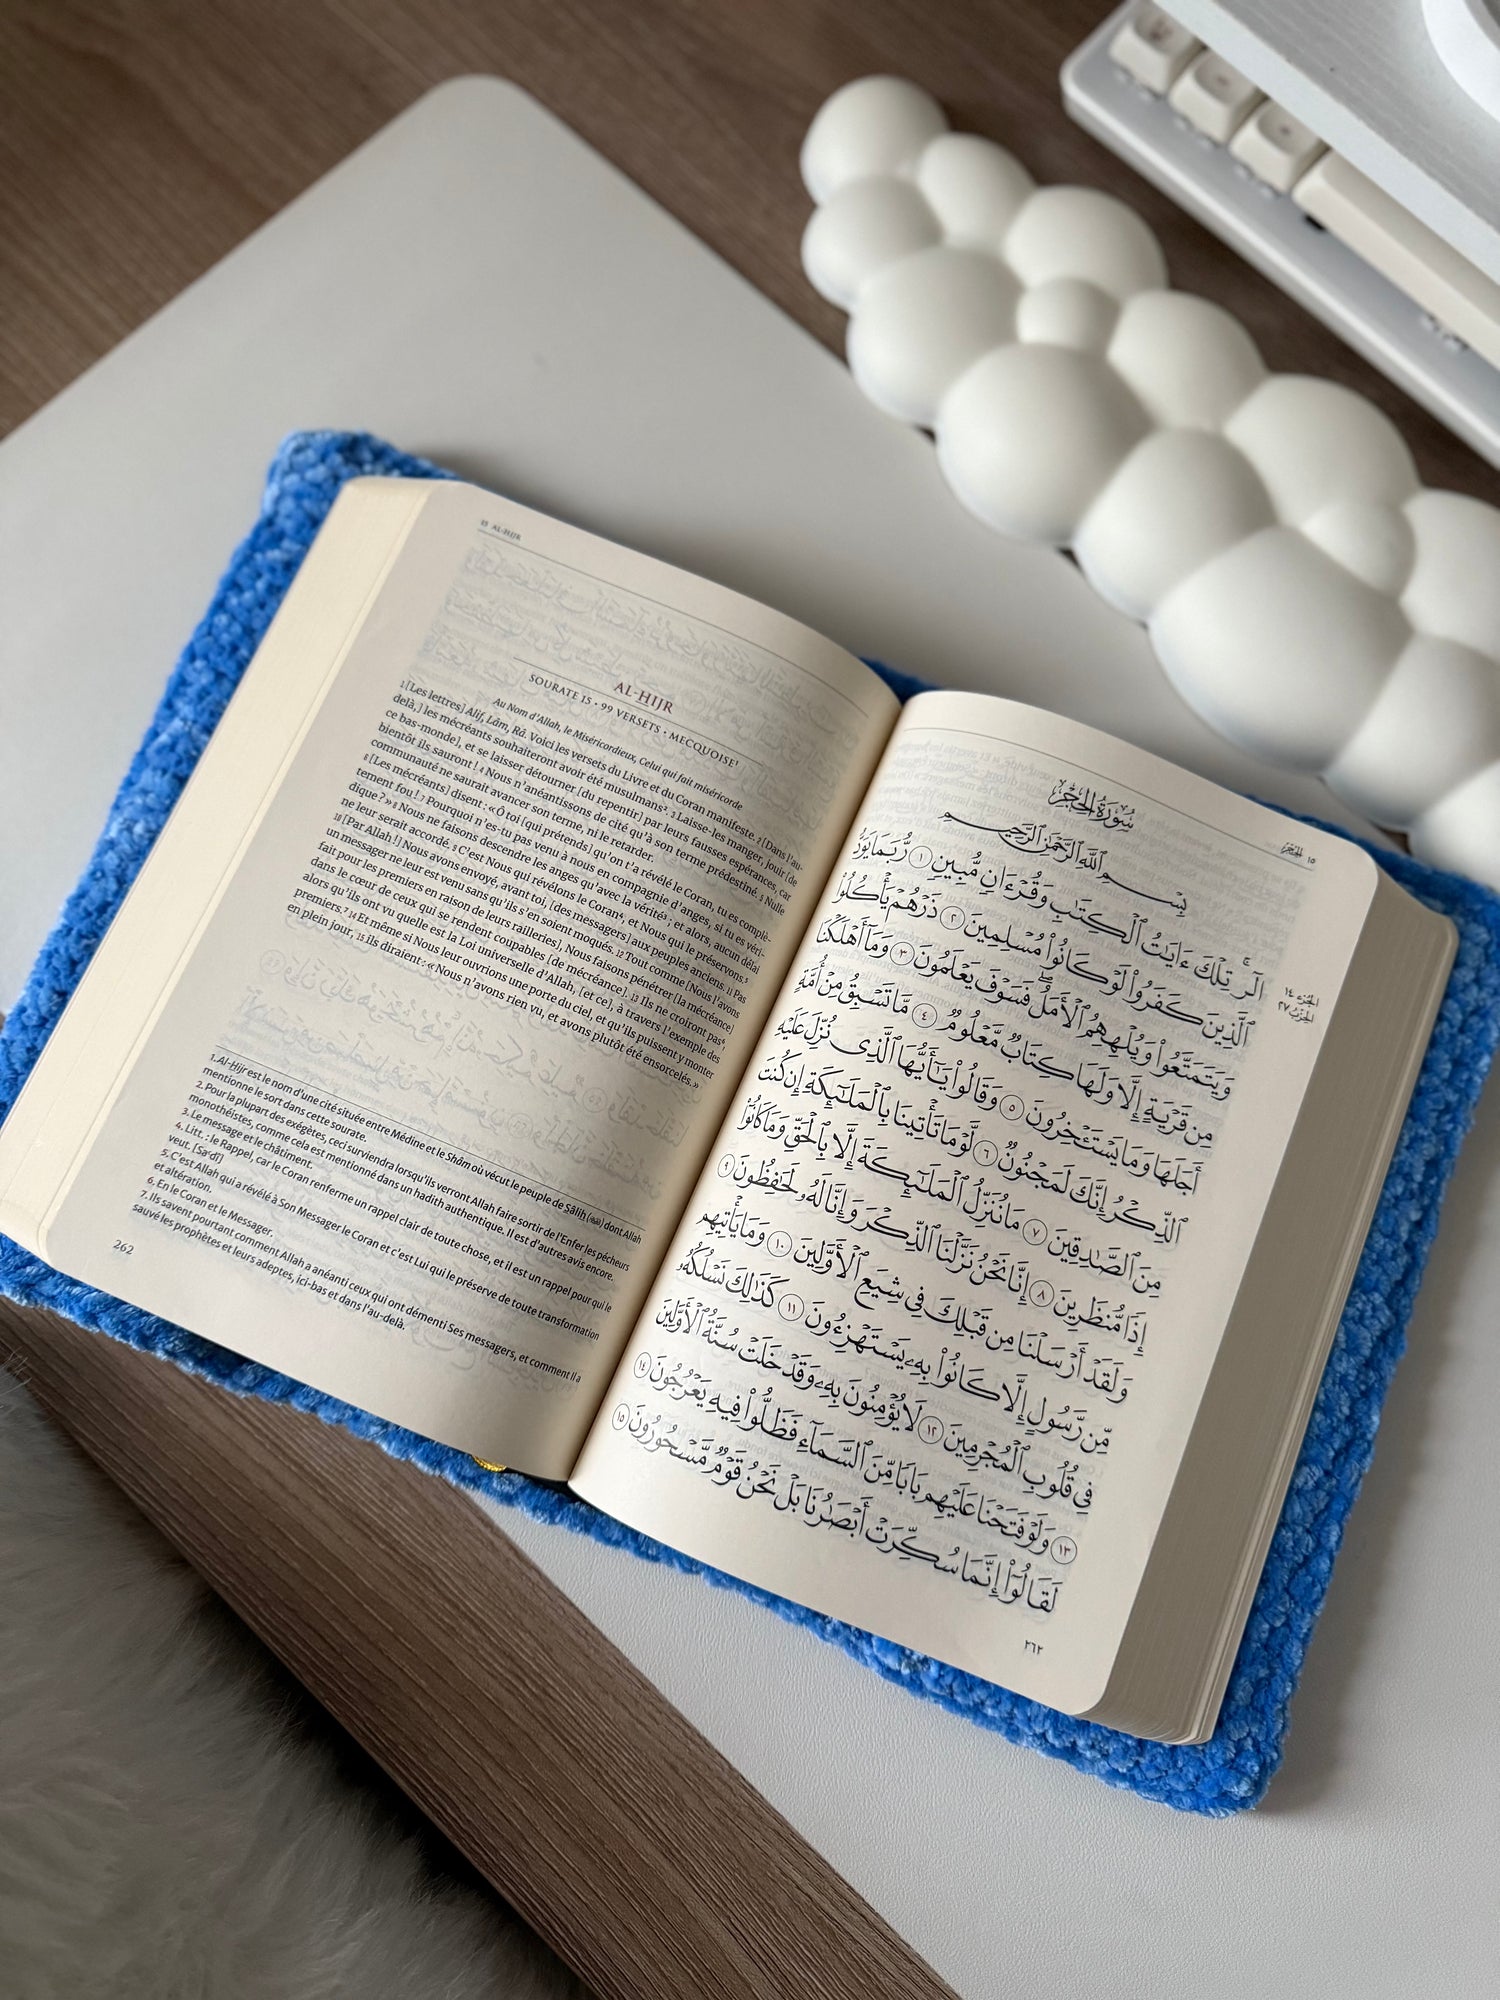 15 AL-HIJR
AL-HIJR
SOURATE 15 • 99 VERSETS • MECQUOISE¹
Au Nom d'Allah, le Miséricordieux, Celui qui fait miséricorde
¹ [Les lettres] Alif, Lâm, Râ. Voici les versets du Livre et du Coran manifeste. ² [Dans l'au-
delà,] les mécréants souhaiteront avoir été musulmans². ³ Laisse-les manger, jouir [de
ce bas-monde], et se laisser détourner [du repentir] par leurs fausses espérances, car
bientôt ils sauront ! ⁴ Nous n'anéantissons de cité qu'à son terme prédestiné. ⁵ Nulle
communauté ne saurait avancer son terme, ni le retarder.
⁶ [Les mécréants] disent : « Ô toi [qui prétends] qu'on t'a révélé le Coran, tu es complè-
tement fou ! ⁷ Pourquoi n'es-tu pas venu à nous en compagnie d'anges, si tu es véri-
dique ? » ⁸ Nous ne faisons descendre les anges qu'avec la vérité³ ; et alors, aucun délai
ne leur serait accordé. ⁹ C'est Nous qui révélons le Coran⁴, et Nous qui le préservons.⁵
¹⁰ [Par Allah !] Nous avons envoyé, avant toi, [des messagers] aux peuples anciens. ¹¹ Pas
un messager ne leur est venu sans qu'ils s'en soient moqués. ¹² Tout comme [Nous l'avons
fait pour les premiers en raison de leurs railleries], Nous faisons pénétrer [la mécréance]
dans le cœur de ceux qui se rendent coupables [de mécréance]. ¹³ Ils ne croiront pas⁶,
alors qu'ils ont vu quelle est la Loi universelle d'Allah, [et ce], à travers l'exemple des
premiers.⁷ ¹⁴ Et même si Nous leur ouvrions une porte du ciel, et qu'ils puissent y monter
en plein jour, ¹⁵ ils diraient : « Nous n'avons rien vu, et avons plutôt été ensorcelés. »
1. Al-Hijr est le nom d'une cité située entre Médine et le Shâm où vécut le peuple de Ṣâliḥ (ﷺ) dont Allah
mentionne le sort dans cette sourate.
2. Pour la plupart des exégètes, ceci surviendra lorsqu'ils verront Allah faire sortir de l'Enfer les pécheurs
monothéistes, comme cela est mentionné dans un hadith authentique. Il est d'autres avis encore.
3. Le message et le châtiment.
4. Litt. : le Rappel, car le Coran renferme un rappel clair de toute chose, et il est un rappel pour qui le
veut. [Sa'dî]
5. C'est Allah qui a révélé à Son Messager le Coran et c'est Lui qui le préserve de toute transformation
et altération.
6. En le Coran et le Messager.
7. Ils savent pourtant comment Allah a anéanti ceux qui ont démenti Ses messagers, et comment Il a
sauvé les prophètes et leurs adeptes, ici-bas et dans l'au-delà.
262
١٥ الحجر
سُورَةُ الحِجْرِ
بِسْمِ ٱللَّهِ ٱلرَّحْمَٰنِ ٱلرَّحِيمِ
الٓرۚ تِلْكَ ءَايَٰتُ ٱلْكِتَٰبِ وَقُرْءَانٍ مُّبِينٍ ١ رُّبَمَا يَوَدُّ
ٱلَّذِينَ كَفَرُوا۟ لَوْ كَانُوا۟ مُسْلِمِينَ ٢ ذَرْهُمْ يَأْكُلُوا۟
وَيَتَمَتَّعُوا۟ وَيُلْهِهِمُ ٱلْأَمَلُ ۖ فَسَوْفَ يَعْلَمُونَ ٣ وَمَآ أَهْلَكْنَا
مِن قَرْيَةٍ إِلَّا وَلَهَا كِتَابٌ مَّعْلُومٌ ٤ مَّا تَسْبِقُ مِنْ أُمَّةٍ
أَجَلَهَا وَمَا يَسْتَـْٔخِرُونَ ٥ وَقَالُوا۟ يَٰٓأَيُّهَا ٱلَّذِى نُزِّلَ عَلَيْهِ
ٱلذِّكْرُ إِنَّكَ لَمَجْنُونٌ ٦ لَّوْ مَا تَأْتِينَا بِٱلْمَلَٰٓئِكَةِ إِن كُنتَ
مِنَ ٱلصَّٰدِقِينَ ٧ مَا نُنَزِّلُ ٱلْمَلَٰٓئِكَةَ إِلَّا بِٱلْحَقِّ وَمَا كَانُوٓا۟
إِذًا مُّنظَرِينَ ٨ إِنَّا نَحْنُ نَزَّلْنَا ٱلذِّكْرَ وَإِنَّا لَهُۥ لَحَٰفِظُونَ ٩
وَلَقَدْ أَرْسَلْنَا مِن قَبْلِكَ فِى شِيَعِ ٱلْأَوَّلِينَ ١٠ وَمَا يَأْتِيهِم
مِّن رَّسُولٍ إِلَّا كَانُوا۟ بِهِۦ يَسْتَهْزِءُونَ ١١ كَذَٰلِكَ نَسْلُكُهُۥ
فِى قُلُوبِ ٱلْمُجْرِمِينَ ١٢ لَا يُؤْمِنُونَ بِهِۦ وَقَدْ خَلَتْ سُنَّةُ ٱلْأَوَّلِينَ
١٣ وَلَوْ فَتَحْنَا عَلَيْهِم بَابًا مِّنَ ٱلسَّمَآءِ فَظَلُّوا۟ فِيهِ يَعْرُجُونَ ١٤
لَقَالُوٓا۟ إِنَّمَا سُكِّرَتْ أَبْصَٰرُنَا بَلْ نَحْنُ قَوْمٌ مَّسْحُورُونَ ١٥
الجُزْء ١٤
الحِزْبُ ٢٧
٢٦٢